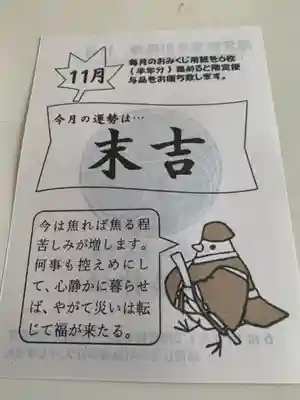 11月
毎月のおみくじ用紙を6枚
(半年分)集めると限定授
与品をお頒ち致します。
今月の運勢は…
末吉
今は焦れば焦る程
苦しみが増します。
何事も控えめにし
て、心静かに暮らせ
ば、やがて災いは転
じて福が来たる。